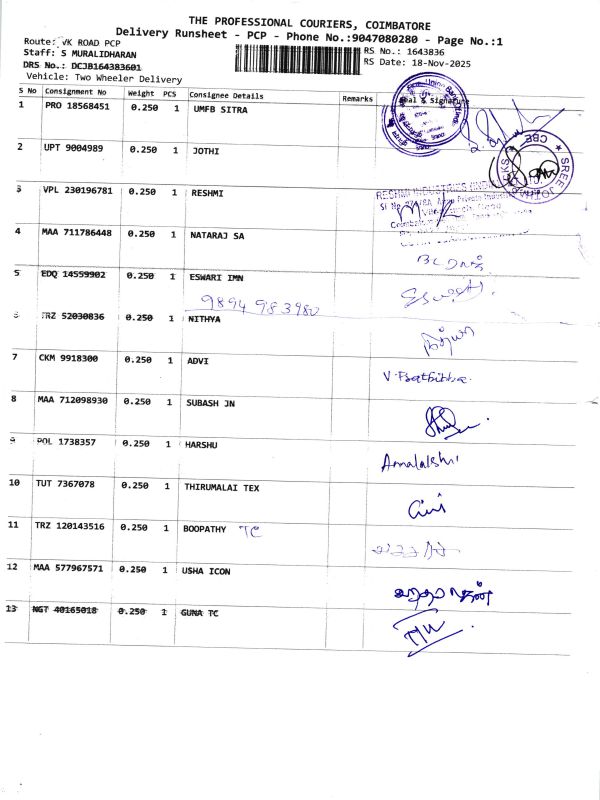 THE PROFESSIONAL COURIERS, COIMBATORE
Delivery Runsheet - PCP - Phone No.:9047080280 - Page No.:1
Route: VK ROAD PCP
RS No.: 1643836
Staff: S MURALIDHARAN
RS Date: 18-Nov-2025
DRS No.: DCJB164383601
Vehicle: Two Wheeler Delivery
S No Consignment No Weight PCS Consignee Details Remarks Seal & Signature
1 PRO 18568451 0.250 1 UMFB SITRA
Union Bank Of
2 UPT 9004989 0.250 1 JOTHI
SREE JOTHI CBE
3 VPL 230196781 0.250 1 RESHMI
RESHMI INDUSTRIES
4 MAA 711786448 0.250 1 NATARAJ SA
5 EDQ 14559902 0.250 1 ESWARI IMN
9894 983980
6 TRZ 52030836 0.250 1 NITHYA
நித்யா
7 CKM 9918300 0.250 1 ADVI
8 MAA 712098930 0.250 1 SUBASH JN
9 POL 1738357 0.250 1 HARSHU
10 TUT 7367078 0.250 1 THIRUMALAI TEX
11 TRZ 120143516 0.250 1 BOOPATHY TC
12 MAA 577967571 0.250 1 USHA ICON
13 NGT 40165018 0.250 1 GUNA TC